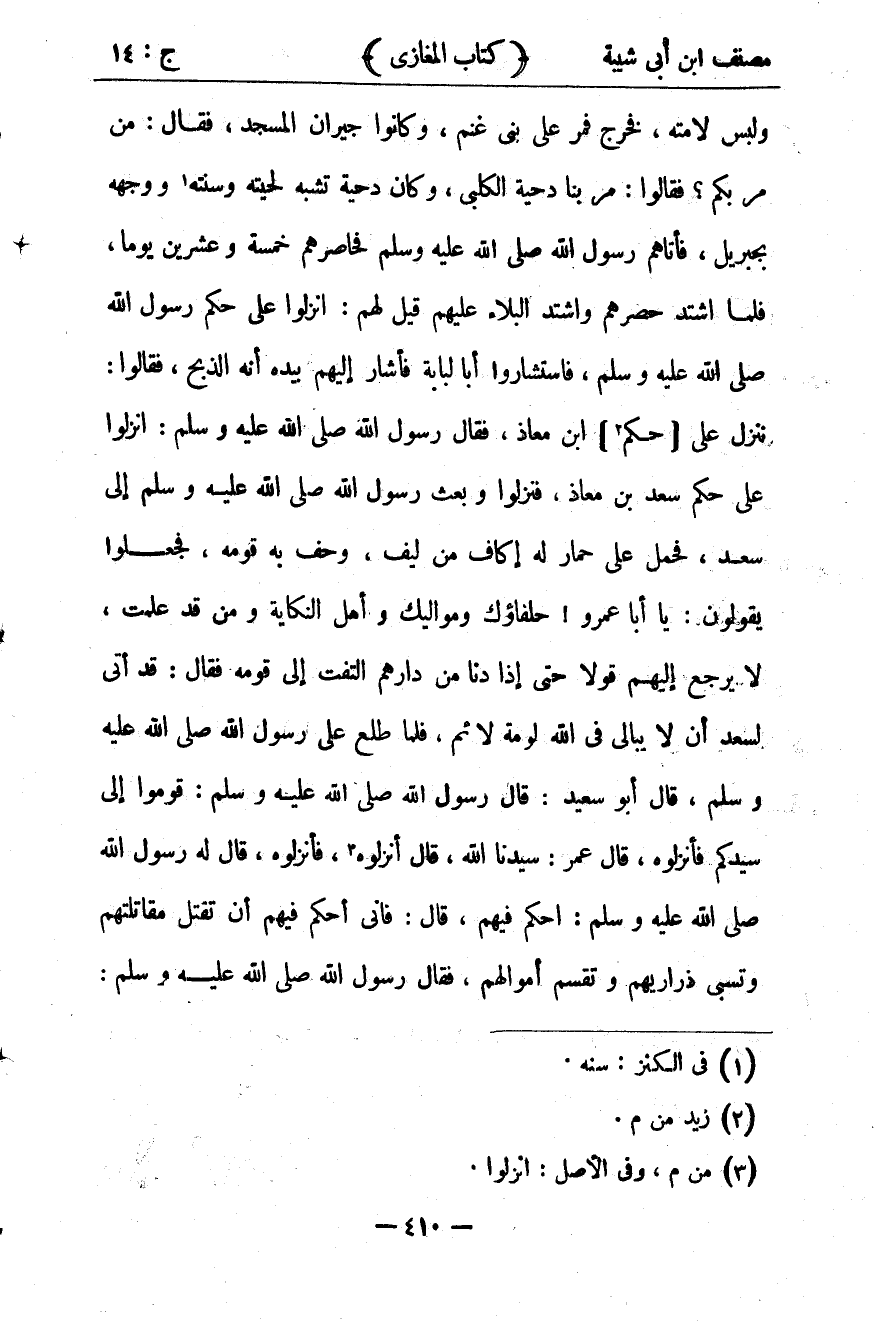 مصنف ابن أبى شيبة ﴿ كتاب المغازى ﴾ ج : ١٤
ولبس لامته ، فخرج فمر على بنى غنم ، وكانوا جيران المسجد ، فقال : من
مر بكم ؟ فقالوا : مر بنا دحية الكلبى ، وكان دحية تشبه لحيته وسنته١ و وجهه
بجبريل ، فأتاهم رسول الله صلى الله عليه وسلم فحاصرهم خمسة و عشرين يوما ،
فلما اشتد حصرهم واشتد البلاء عليهم قيل لهم : انزلوا على حكم رسول الله
صلى الله عليه و سلم ، فاستشاروا أبا لبابة فأشار إليهم بيده أنه الذبح ، فقالوا :
ننزل على [ حكم٢ ] ابن معاذ ، فقال رسول الله صلى الله عليه و سلم : انزلوا
على حكم سعد بن معاذ ، فنزلوا و بعث رسول الله صلى الله عليه و سلم إلى
سعد ، فحمل على حمار له إكاف من ليف ، وحف به قومه ، فجعلوا
يقولون : يا أبا عمرو ! حلفاؤك ومواليك و أهل النكاية و من قد علمت ،
لا يرجع إليهم قولا حتى إذا دنا من دارهم التفت إلى قومه فقال : قد أتى
لسعد أن لا يبالى فى الله لومة لائم ، فلما طلع على رسول الله صلى الله عليه
و سلم ، قال أبو سعيد : قال رسول الله صلى الله عليه و سلم : قوموا إلى
سيدكم فأنزلوه ، قال عمر : سيدنا الله ، قال أنزلوه٣ ، فأنزلوه ، قال له رسول الله
صلى الله عليه و سلم : احكم فيهم ، قال : فانى أحكم فيهم أن تقتل مقاتلتهم
وتسبى ذراريهم و تقسم أموالهم ، فقال رسول الله صلى الله عليه و سلم :
(١) فى الكنز : سنه ٠
(٢) زيد من م ٠
(٣) من م ، وفى الأصل : انزلوا ٠
— ٤١٠ —